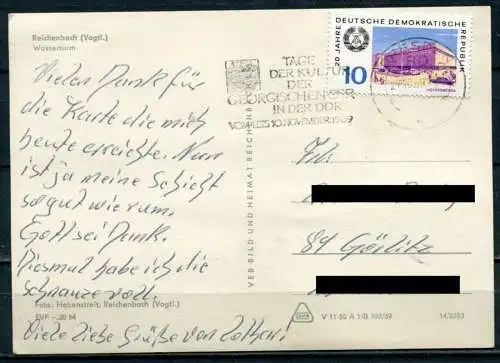 Reichenbach (Vogtl.)
Wasserturm
Vielen Dank für
die Karte die mich
heute erreichte. Nun
ist ja meine Schicht
so gut wie rum.
Gott sei Dank.
Diesmal habe ich die
schnauze voll.
Foto: Hebenstreit, Reichenbach (Vogtl.)
EVP –.20 M
Viele liebe Grüße von Lothar!
VEB BILD UND HEIMAT REICHENBACH
TAGE
DER KULTUR
DER
GEORGISCHEN SSR
IN DER DDR
BIS 10. NOVEMBER 1969
20 JAHRE DEUTSCHE DEMOKRATISCHE REPUBLIK
10
Frl.
89 Görlitz
V 11 50 A 1/B